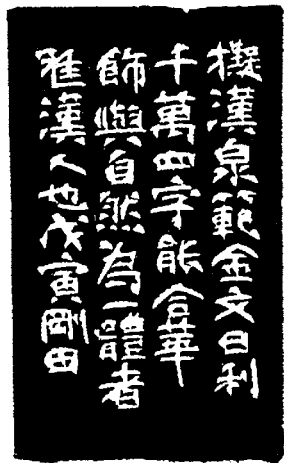 擬漢泉範金文日利
千萬四字能合華
飾與自然為一體者
唯漢人也戊寅剛田